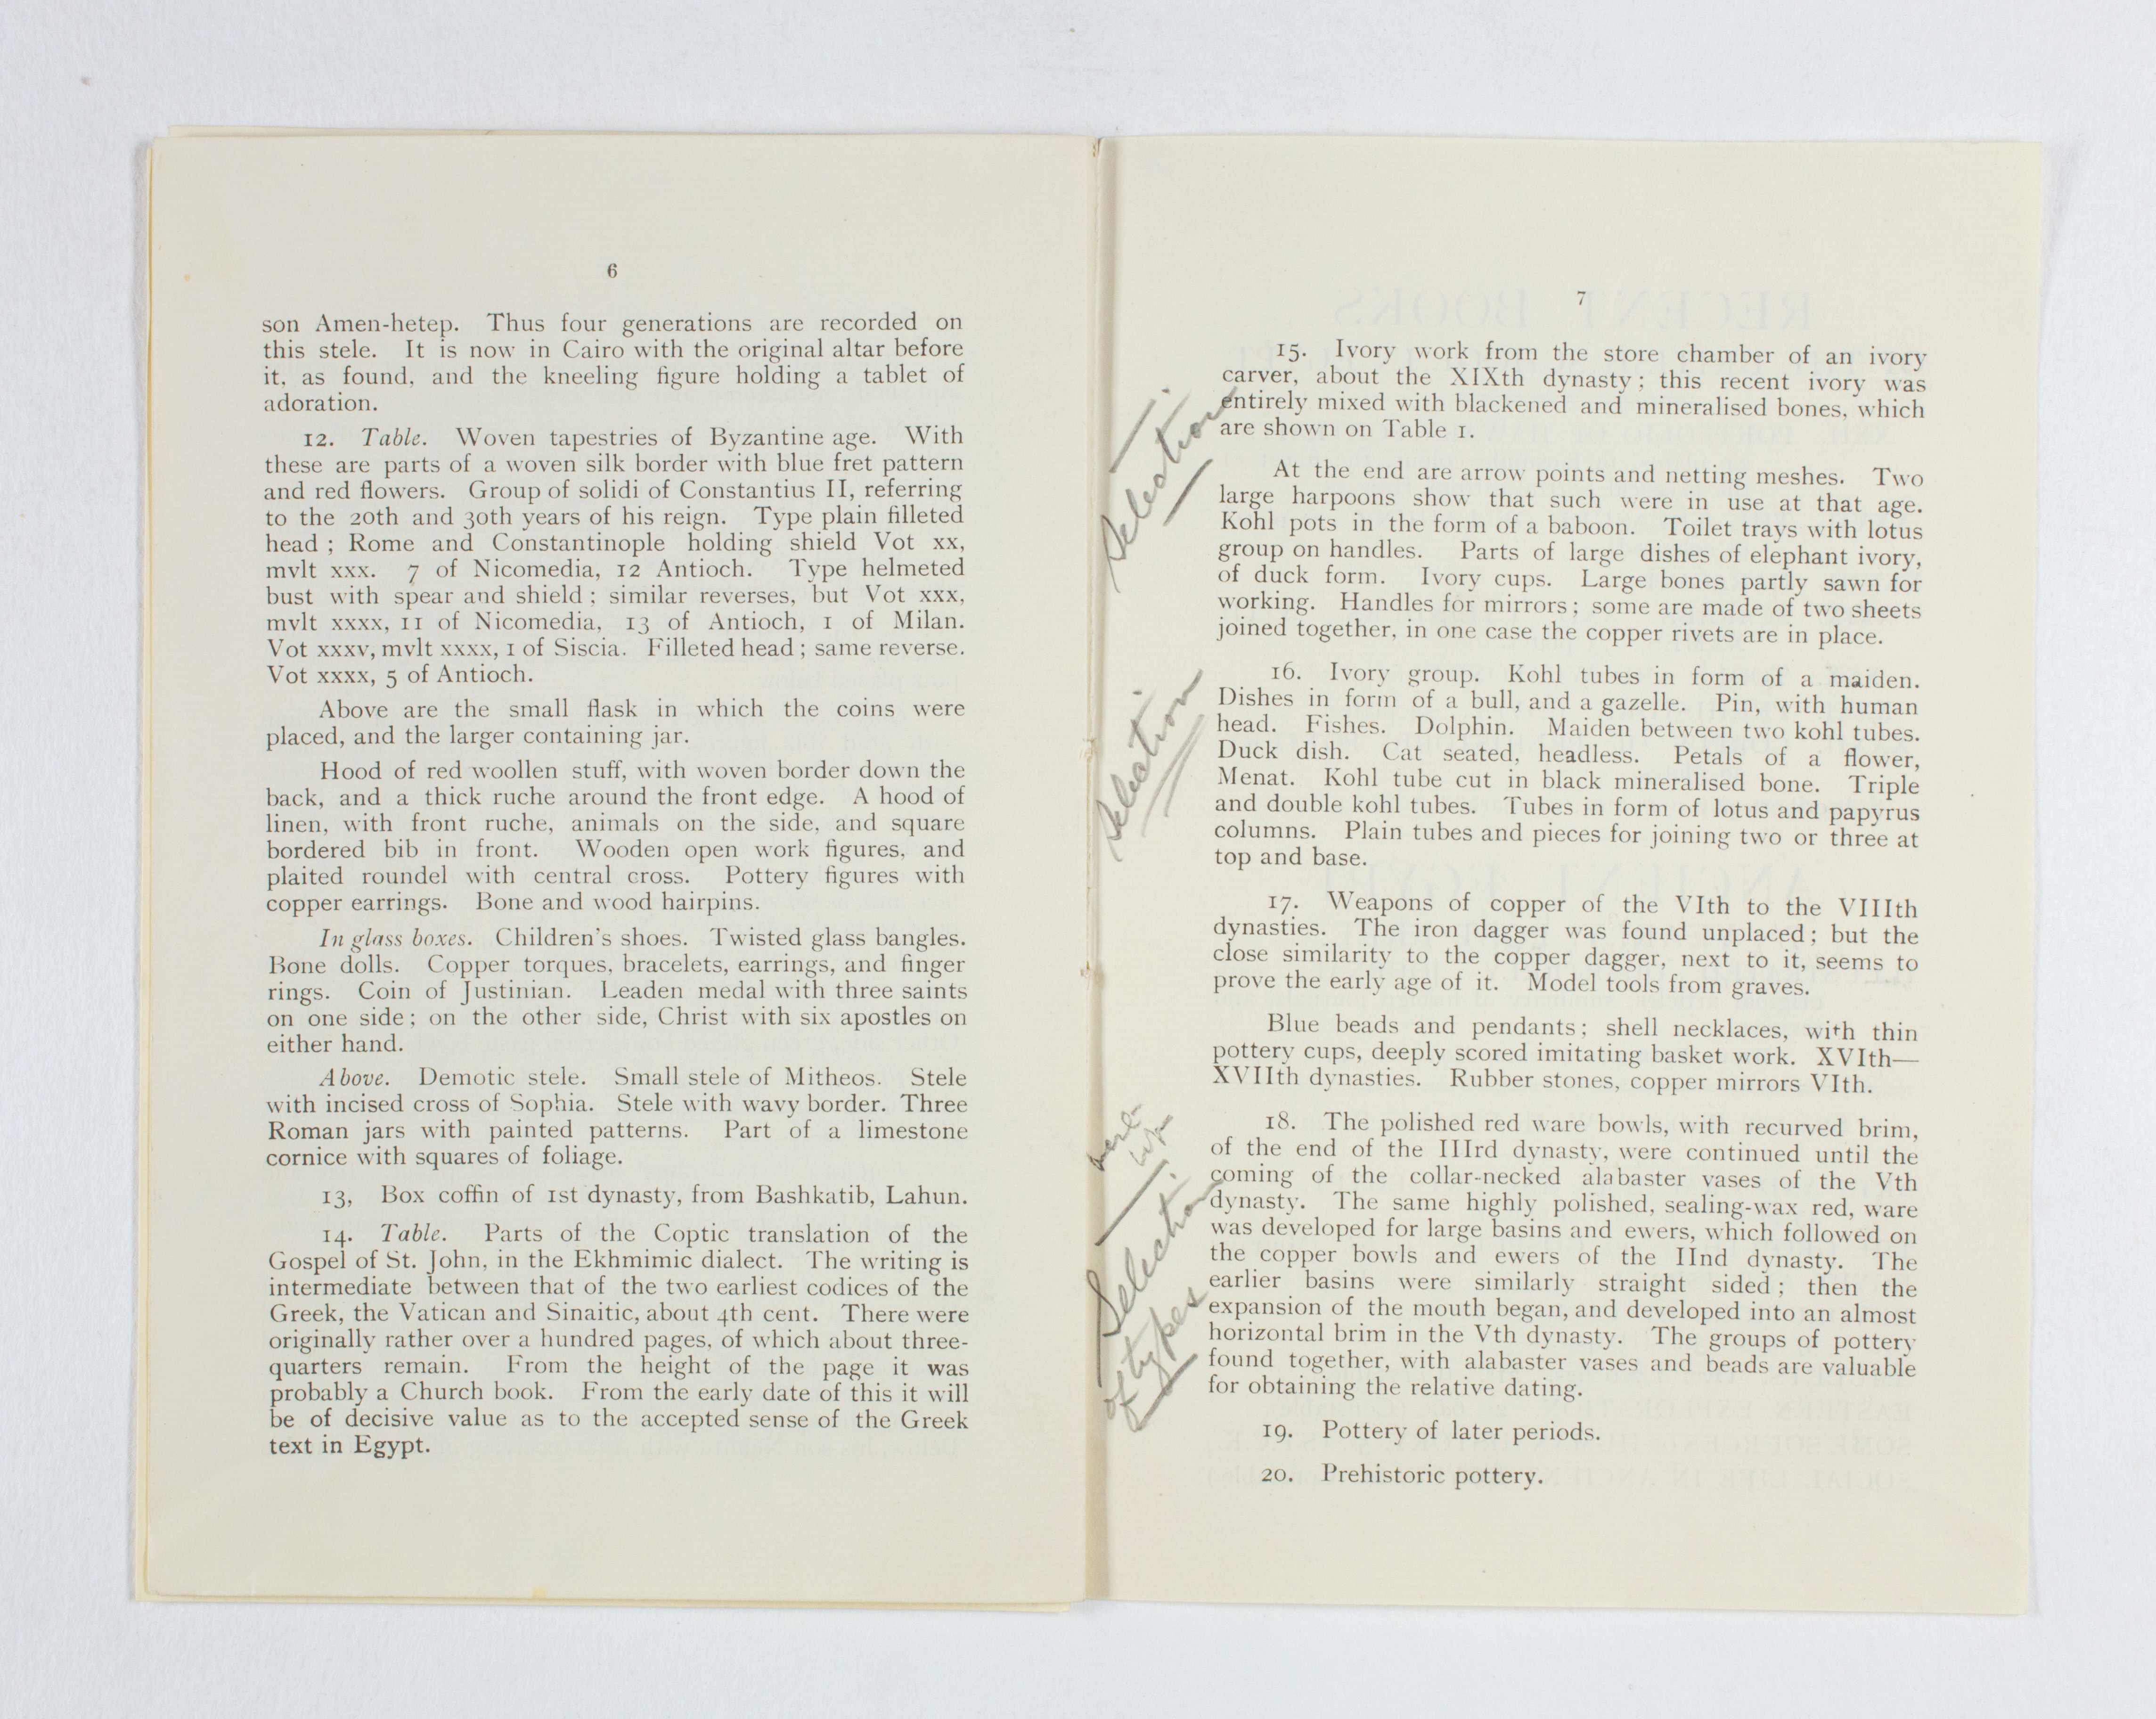 6
son Amen-hetep. Thus four generations are recorded on
this stele. It is now in Cairo with the original altar before
it, as found, and the kneeling figure holding a tablet of
adoration.
12. Table. Woven tapestries of Byzantine age. With
these are parts of a woven silk border with blue fret pattern
and red flowers. Group of solidi of Constantius II, referring
to the 20th and 30th years of his reign. Type plain filleted
head ; Rome and Constantinople holding shield Vot xx,
mvlt xxx. 7 of Nicomedia, 12 Antioch. Type helmeted
bust with spear and shield ; similar reverses, but Vot xxx,
mvlt xxxx, 11 of Nicomedia, 13 of Antioch, 1 of Milan.
Vot xxxv, mvlt xxxx, 1 of Siscia. Filleted head ; same reverse.
Vot xxxx, 5 of Antioch.
Above are the small flask in which the coins were
placed, and the larger containing jar.
Hood of red woollen stuff, with woven border down the
back, and a thick ruche around the front edge. A hood of
linen, with front ruche, animals on the side, and square
bordered bib in front. Wooden open work figures, and
plaited roundel with central cross. Pottery figures with
copper earrings. Bone and wood hairpins.
In glass boxes. Children's shoes. Twisted glass bangles.
Bone dolls. Copper torques, bracelets, earrings, and finger
rings. Coin of Justinian. Leaden medal with three saints
on one side ; on the other side, Christ with six apostles on
either hand.
Above. Demotic stele. Small stele of Mitheos. Stele
with incised cross of Sophia. Stele with wavy border. Three
Roman jars with painted patterns. Part of a limestone
cornice with squares of foliage.
13, Box coffin of 1st dynasty, from Bashkatib, Lahun.
14. Table. Parts of the Coptic translation of the
Gospel of St. John, in the Ekhmimic dialect. The writing is
intermediate between that of the two earliest codices of the
Greek, the Vatican and Sinaitic, about 4th cent. There were
originally rather over a hundred pages, of which about three-
quarters remain. From the height of the page it was
probably a Church book. From the early date of this it will
be of decisive value as to the accepted sense of the Greek
text in Egypt.
7
15. Ivory work from the store chamber of an ivory
carver, about the XIXth dynasty ; this recent ivory was
entirely mixed with blackened and mineralised bones, which
are shown on Table 1.
Selection
At the end are arrow points and netting meshes. Two
large harpoons show that such were in use at that age.
Kohl pots in the form of a baboon. Toilet trays with lotus
group on handles. Parts of large dishes of elephant ivory,
of duck form. Ivory cups. Large bones partly sawn for
working. Handles for mirrors ; some are made of two sheets
joined together, in one case the copper rivets are in place.
Selection
16. Ivory group. Kohl tubes in form of a maiden.
Dishes in form of a bull, and a gazelle. Pin, with human
head. Fishes. Dolphin. Maiden between two kohl tubes.
Duck dish. Cat seated, headless. Petals of a flower,
Menat. Kohl tube cut in black mineralised bone. Triple
and double kohl tubes. Tubes in form of lotus and papyrus
columns. Plain tubes and pieces for joining two or three at
top and base.
17. Weapons of copper of the VIth to the VIIIth
dynasties. The iron dagger was found unplaced ; but the
close similarity to the copper dagger, next to it, seems to
prove the early age of it. Model tools from graves.
Blue beads and pendants ; shell necklaces, with thin
pottery cups, deeply scored imitating basket work. XVIth—
XVIIth dynasties. Rubber stones, copper mirrors VIth.
Selection
of types
18. The polished red ware bowls, with recurved brim,
of the end of the IIIrd dynasty, were continued until the
coming of the collar-necked alabaster vases of the Vth
dynasty. The same highly polished, sealing-wax red, ware
was developed for large basins and ewers, which followed on
the copper bowls and ewers of the IInd dynasty. The
earlier basins were similarly straight sided ; then the
expansion of the mouth began, and developed into an almost
horizontal brim in the Vth dynasty. The groups of pottery
found together, with alabaster vases and beads are valuable
for obtaining the relative dating.
19. Pottery of later periods.
20. Prehistoric pottery.